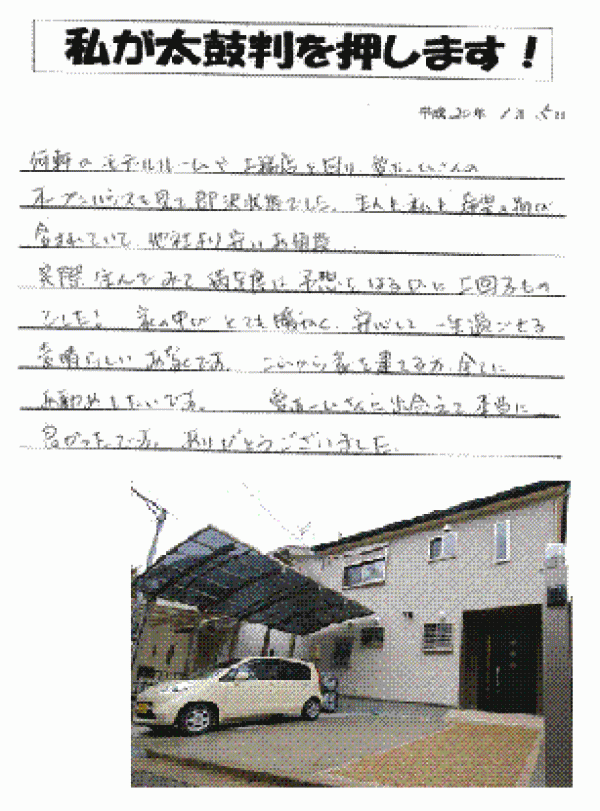 私が太鼓判を押します！
平成20年 1月 5日
何軒のモデルルームや工務店を回り
オープンハウスを見て即決状態でした。主人も私も希望の
含まれていて、他社より安いお値段
実際住んでみて満足度は予想をはるかに上回るもの
でした！ 家の中が とても暖かく、安心して 一生過ごせる
素晴らしい お家です。 これから家を建てる方 全てに
お勧めしたいです。 さんに出会えて 本当に
良かったです。ありがとうございました。